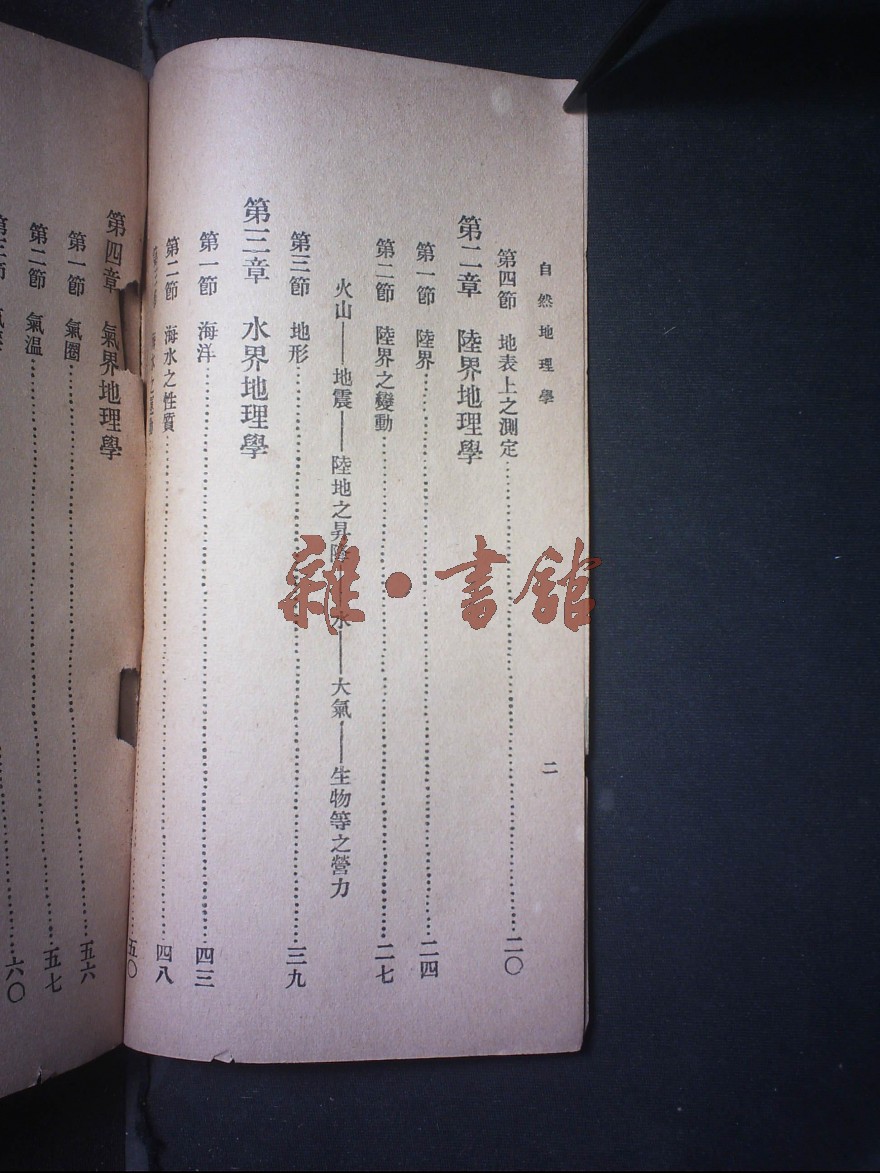 自然地理學
二
第四節 地表上之測定……二〇
第二章 陸界地理學
第一節 陸界……二四
第二節 陸界之變動……二七
火山——地震——陸地之昇降——水——大氣——生物等之營力
第三節 地形……三九
第三章 水界地理學
第一節 海洋……四三
第二節 海水之性質……四八
五〇
第四章 氣界地理學
第一節 氣圈……五六
第二節 氣溫……五七
第三節……六〇
雜·書館